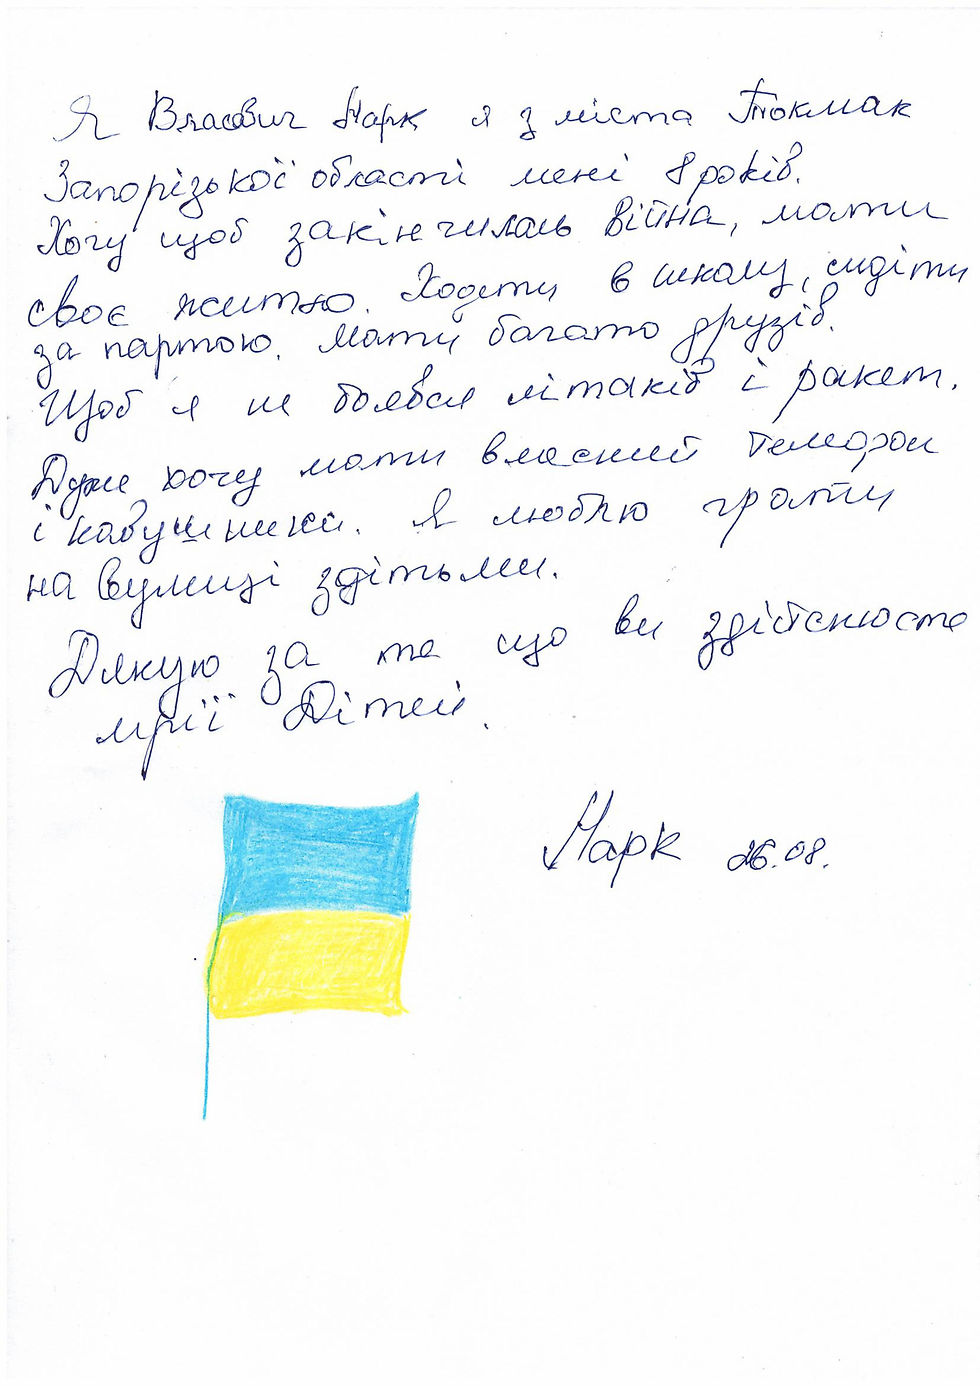 Я Власович Марк я з міста Токмак
Запорізької області мені 8 років.
Хочу щоб закінчилась війна, мати
своє житло. Ходити в школу, сидіти
за партою. Мати багато друзів.
Щоб я не боявся літаків і ракет.
Дуже хочу мати власний телефон
і навушники. Я люблю грати
на вулиці здітьми.
Дякую за те що ви здійснюєте
мрії Дітей.
Марк 26.08.